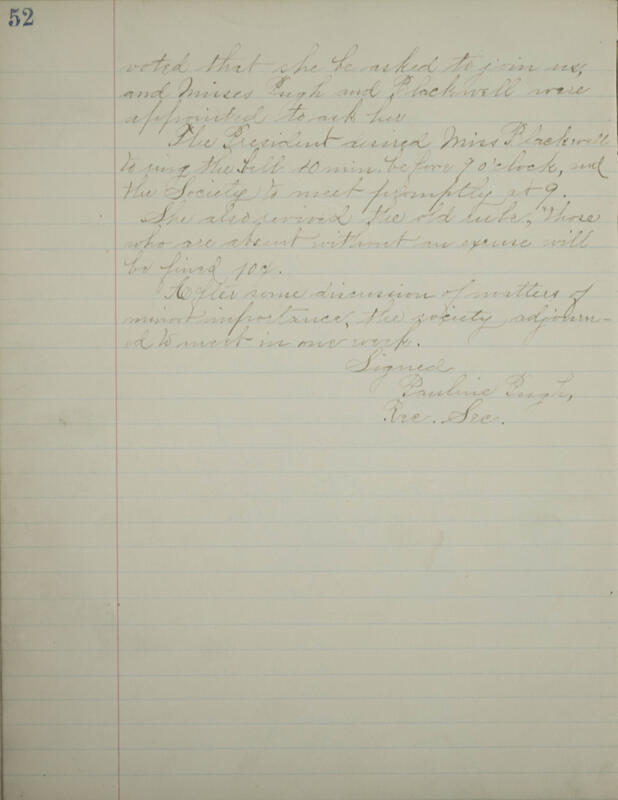 52
voted that she be asked to join us,
and Misses Pugh and Blackwell were
appointed to ask her
The President asked Miss Blackwell
to ring the bell 10 min. before 9 o'clock, and
the Society to meet promptly at 9.
She also revived the old rule, "Those
who are absent without an excuse will
be fined 10c.
After some discussion of matters of
minor importance, the society adjourn-
ed to meet in one week.
Signed
Pauline Pugh,
Rec. Sec.